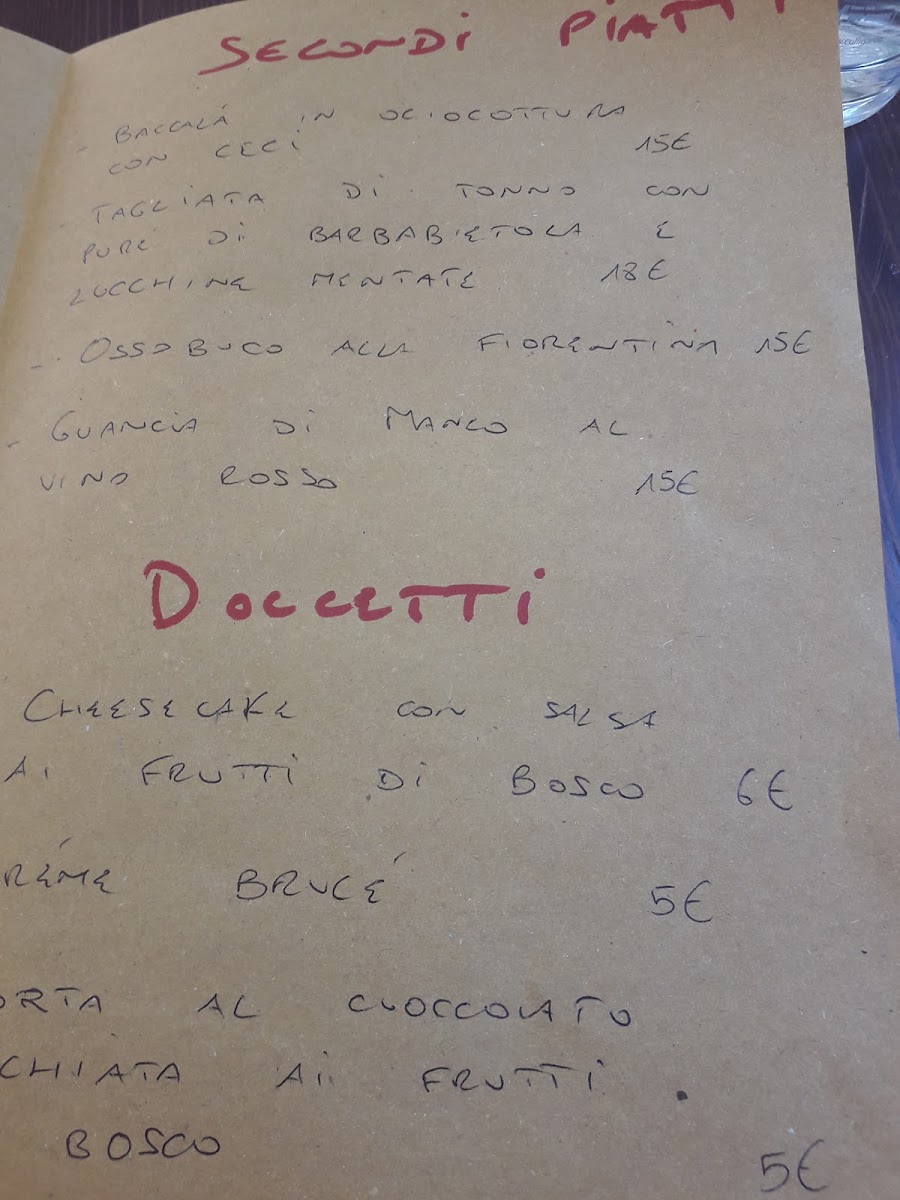 SECONDI PIATTI
- BACCALÁ IN OLIOCOTTURA
CON CECI 15€
- TAGLIATA DI TONNO CON
PURÉ DI BARBABIETOLA E
ZUCCHINE MENTATE 18€
- OSSOBUCO ALLA FIORENTINA 15€
- GUANCIA DI MANZO AL
VINO ROSSO 15€
DOLCETTI
CHEESECAKE CON SALSA
AI FRUTTI DI BOSCO 6€
RÉME BRULÉ 5€
ORTA AL CIOCCOLATO
CHIATA AI FRUTTI
BOSCO 5€